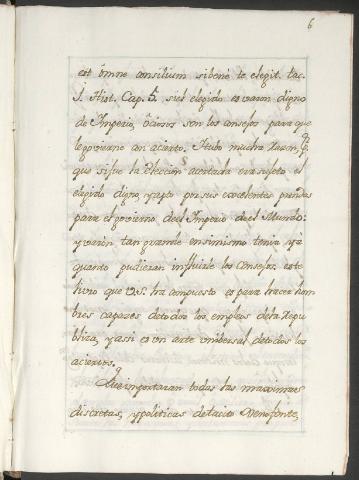 6
est omne consilium si bene te elegit. Tac.
1. Hist. Cap. 5. si el elegido es varon digno
de Imperio, ociosos son los consejos para que
le govierne con acierto. Hubo mucha razon,
que si fue la eleccion acertada era sujeto el
elegido digno, y apto por sus excelentes prendas
para el govierno de el Imperio de el Mundo:
y varon tan grande en si mismo tenia ya
quanto pudieran influirle los Consejos. este
livro que V.S. ha compuesto es para hacer hom
bres capazes de todos los empleos de la Repu
bliza, y assi es un arte unibersal de todos los
aciertos.
Que importaran todas las maximas
discretas, y politicas de tacito Xenofonte,